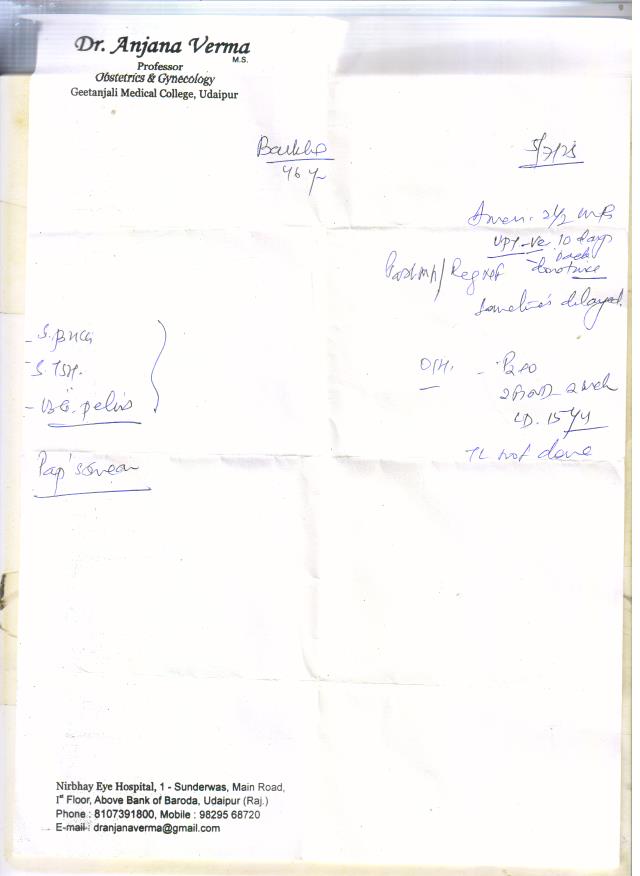 Dr. Anjana Verma
M.S.
Professor
Obstetrics & Gynecology
Geetanjali Medical College, Udaipur
46 y
5/7/25
Amen. 2 1/2
UPT -ve 10 days
back
Past MH / Reg
Sometimes delayed.
- S. βHCG
- S. TSH.
- USG. pelvis
Pap's smear
O/H. -
LD. 15 yr
TL not done
Nirbhay Eye Hospital, 1 - Sunderwas, Main Road,
1st Floor, Above Bank of Baroda, Udaipur (Raj.)
Phone : 8107391800, Mobile : 98295 68720
E-mail : dranjanaverma@gmail.com